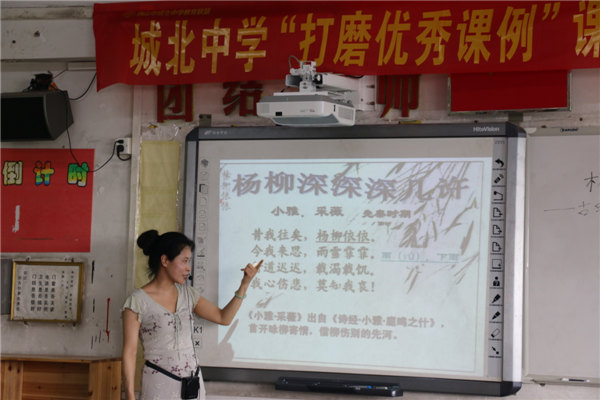 城北中学“打磨优秀课例”课
团结
师
HiteVision
倒计时
杨柳深深深几许
小雅．采薇 先秦时期
昔我往矣，杨柳依依。
今我来思，雨雪霏霏。
道迟迟，载渴载饥。
我心伤悲，莫知我哀！
雨（yù），下雨
《小雅·采薇》出自《诗经·小雅·鹿鸣之什》，
首开咏柳寄情，借柳伤别的先河。
K1